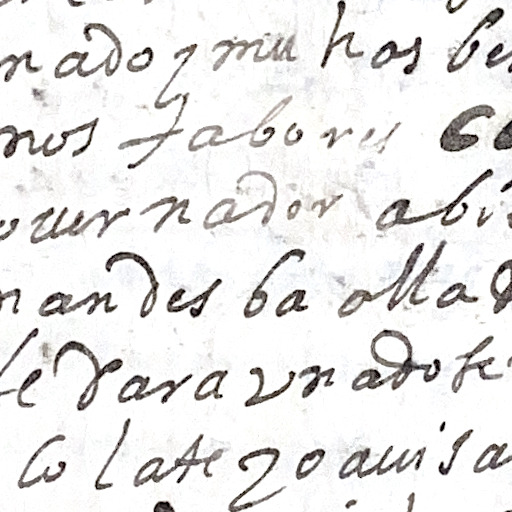 nado y mu hos bes
nos fabores co
overnador abi
nandes ba olla d
le dara un ado se
co late yo avisa